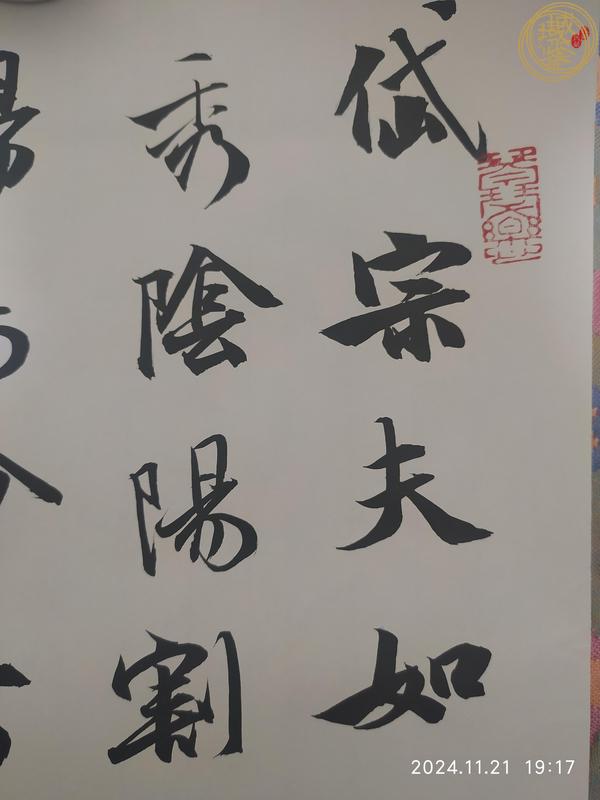 岱宗夫如
秀陰陽割
2024.11.21 19:17